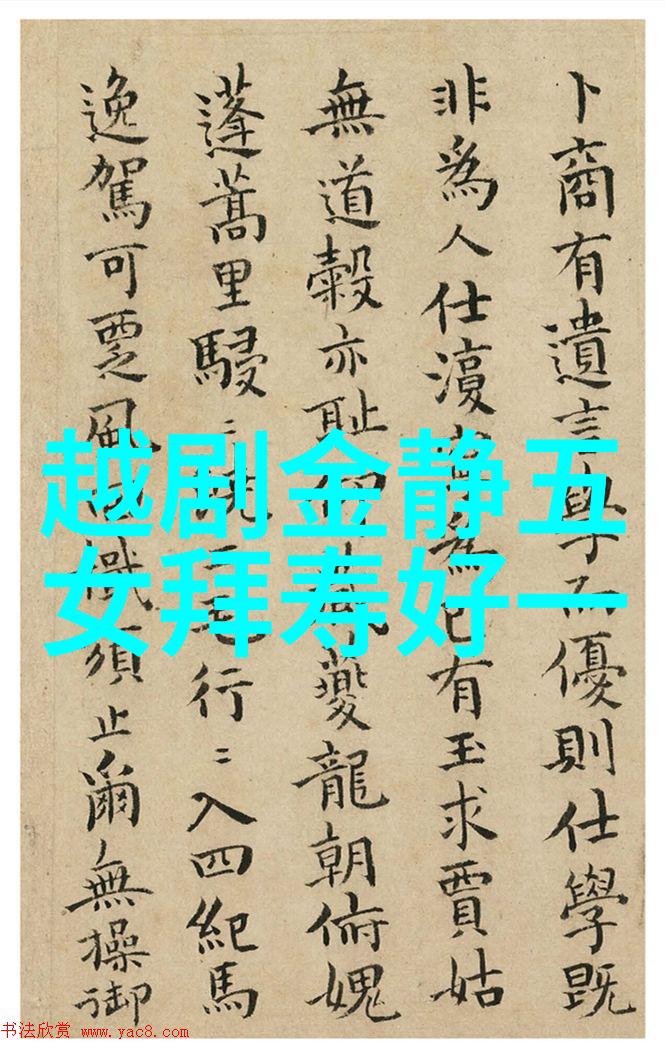 卜商有遺言學而優則仕學既
非爲人仕爲己有玉求賈姑
無道穀亦恥夔龍朝俯媿
蓬蒿里駸〻二毛行〻入四紀馬
逸駕可覂風識須止爾無操御
越剧金静五
女拜寿好一
书法欣赏 www.yac8.com